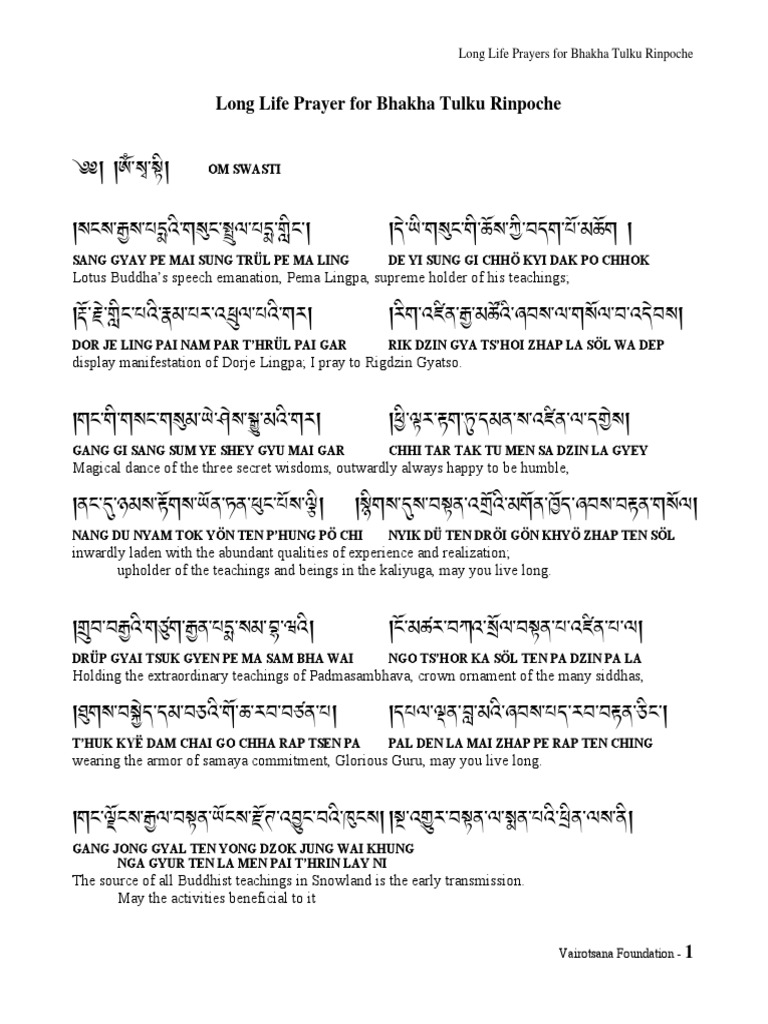 Long Life Prayers for Bhakha Tulku Rinpoche
Long Life Prayer for Bhakha Tulku Rinpoche
༄༅། །ༀ་སྭ་སྟི། OM SWASTI
།སངས་རྒྱས་པདྨའི་གསུང་སྤྲུལ་པདྨ་གླིང་། །དེ་ཡི་གསུང་གི་ཆོས་ཀྱི་བདག་པོ་མཆོག །
SANG GYAY PE MAI SUNG TRÜL PE MA LING DE YI SUNG GI CHHÖ KYI DAK PO CHHOK
Lotus Buddha's speech emanation, Pema Lingpa, supreme holder of his teachings;
།རྡོ་རྗེ་གླིང་པའི་རྣམ་པར་འཕྲུལ་པའི་གར། །རིག་འཛིན་རྒྱ་མཚོའི་ཞབས་ལ་གསོལ་བ་འདེབས།
DOR JE LING PAI NAM PAR T'HRÜL PAI GAR RIK DZIN GYA TS'HOI ZHAP LA SÖL WA DEP
display manifestation of Dorje Lingpa; I pray to Rigdzin Gyatso.
།གང་གི་གསང་གསུམ་ཡེ་ཤེས་སྒྱུ་མའི་གར། །ཕྱི་ལྟར་རྟག་ཏུ་དམན་ས་འཛིན་ལ་དགྱེས།
GANG GI SANG SUM YE SHEY GYU MAI GAR CHHI TAR TAK TU MEN SA DZIN LA GYEY
Magical dance of the three secret wisdoms, outwardly always happy to be humble,
།ནང་དུ་ཉམས་རྟོགས་ཡོན་ཏན་ཕུང་པོས་ལྕི། །སྙིགས་དུས་བསྟན་འགྲོའི་མགོན་ཁྱོད་ཞབས་བརྟན་གསོལ།
NANG DU NYAM TOK YÖN TEN P'HUNG PÖ CHI NYIK DÜ TEN DRÖI GÖN KHYÖ ZHAP TEN SÖL
inwardly laden with the abundant qualities of experience and realization;
upholder of the teachings and beings in the kaliyuga, may you live long.
།གྲུབ་བརྒྱའི་གཙུག་རྒྱན་པདྨ་སམ་བྷ་ཝའི། །ངོ་མཚར་བཀའ་སྲོལ་བསྟན་པ་འཛིན་པ་ལ།
DRÜP GYAI TSUK GYEN PE MA SAM BHA WAI NGO TS'HOR KA SÖL TEN PA DZIN PA LA
Holding the extraordinary teachings of Padmasambhava, crown ornament of the many siddhas,
།ཐུགས་བསྐྱེད་དམ་བཅའི་གོ་ཆ་རབ་བཙན་པ། །དཔལ་ལྡན་བླ་མའི་ཞབས་པད་རབ་བརྟན་ཅིང་།
T'HUK KYË DAM CHAI GO CHHA RAP TSEN PA PAL DEN LA MAI ZHAP PE RAP TEN CHING
wearing the armor of samaya commitment, Glorious Guru, may you live long.
།གང་ལྗོངས་རྒྱལ་བསྟན་ཡོངས་རྫོགས་འབྱུང་བའི་ཁུངས། །སྔ་འགྱུར་བསྟན་ལ་སྨན་པའི་ཕྲིན་ལས་ནི།
GANG JONG GYAL TEN YONG DZOK JUNG WAI KHUNG
NGA GYUR TEN LA MEN PAI T'HRIN LAY NI
The source of all Buddhist teachings in Snowland is the early transmission.
May the activities beneficial to it
Vairotsana Foundation - 1